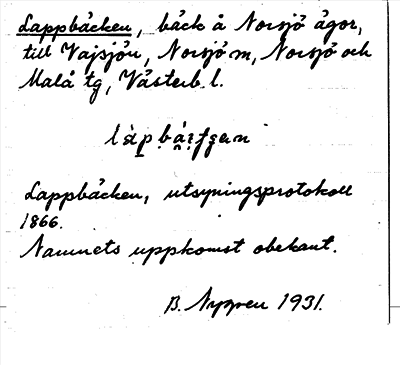 Lappbäcken, bäck å Norsjö ägor,
till Vajsjön, Norsjö sn, Norsjö och
Malå tg, Västerb. l.
Lappbäcken, utsyningsprotokoll
1866.
Namnets uppkomst obekant.
B. Nygren 1931.